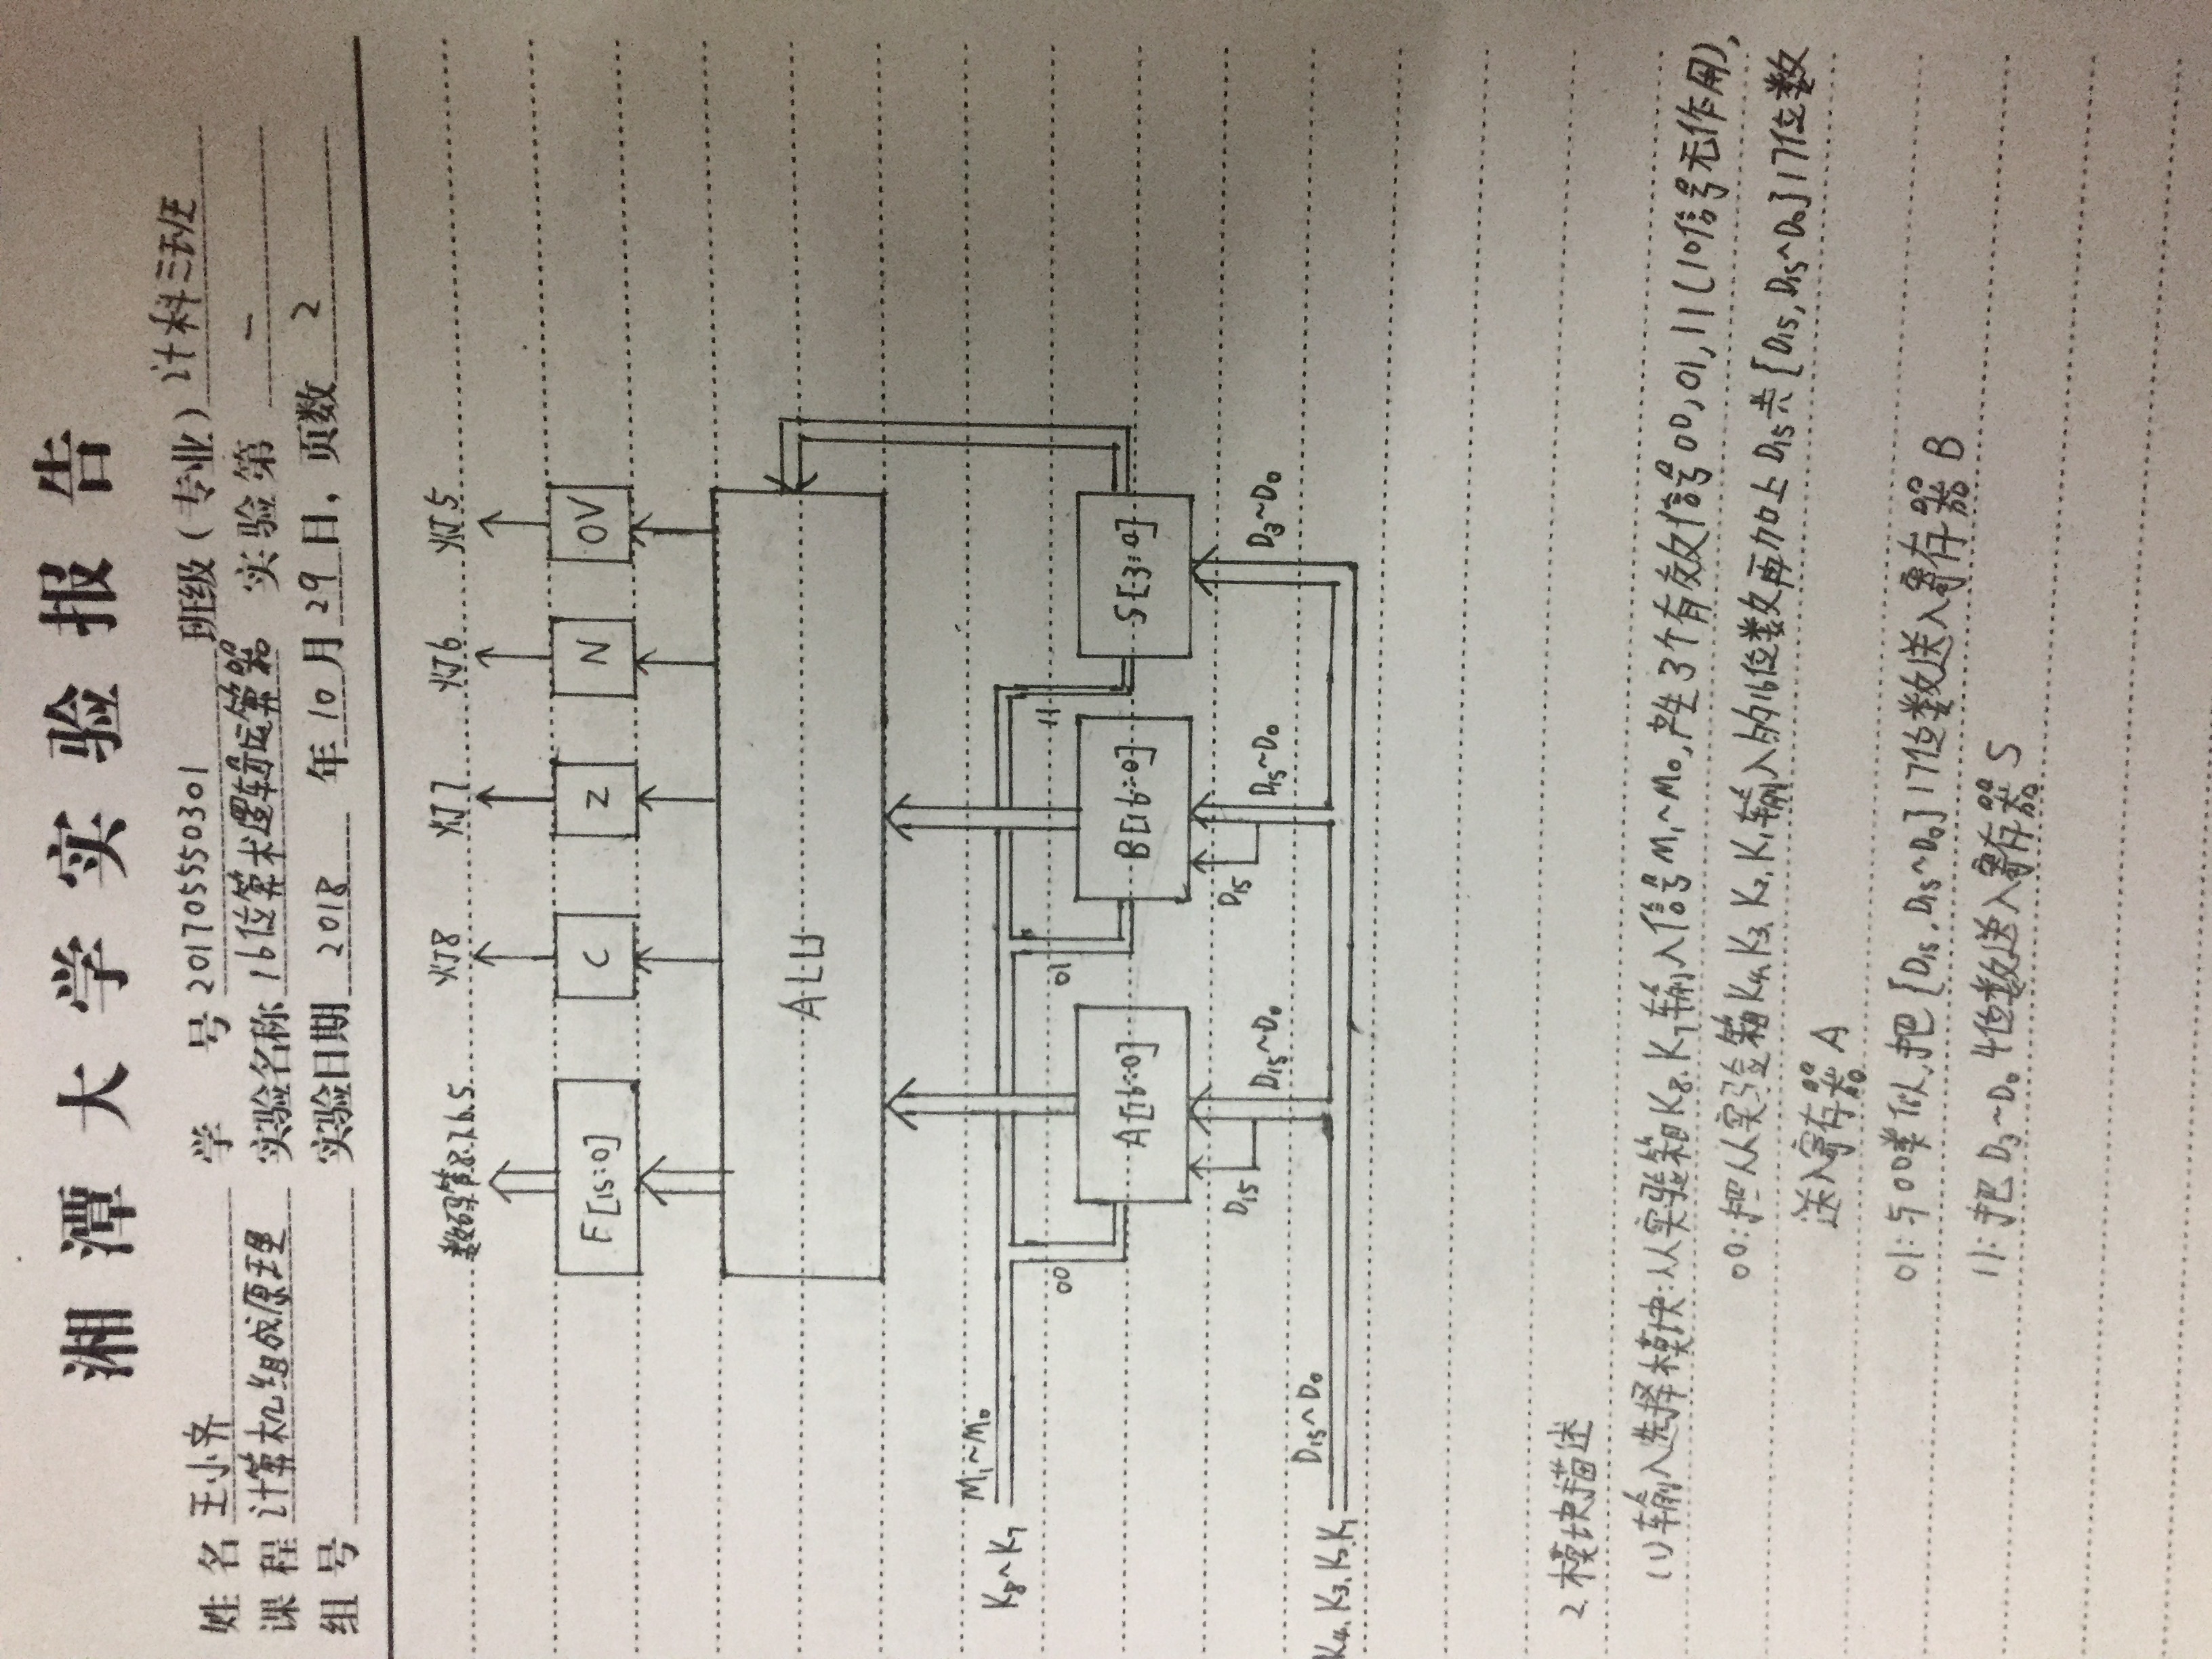 湘潭大学实验报告
姓名 王小齐 学号 201705550301 班级(专业) 计科三班
课程 计算机组成原理 实验名称 16位算术逻辑运算器 实验第 一
组号 实验日期 2018 年 10 月 29 日, 页数 2
数码管8.7.6.5 灯8 灯7 灯6 灯5
F[15:0] C Z N OV
ALU
M₁~M₀
K₈~K₇
00 01 11
A[16:0] B[16:0] S[3:0]
D₁₅ D₁₅~D₀ D₁₅ D₁₅~D₀ D₃~D₀
D₁₅~D₀
K₄、K₃、K₂、K₁
2.模块描述
(1)输入选择模块:从实验箱K₈、K₇输入信号M₁~M₀,产生3个有效信号00,01,11(10信号无作用),
00:把从实验箱K₄、K₃、K₂、K₁输入的16位数再加上D₁₅共[D₁₅,D₁₅~D₀]17位数
送入寄存器A
01:与00类似,把[D₁₅,D₁₅~D₀]17位数送入寄存器B
11:把D₃~D₀4位数送入寄存器S